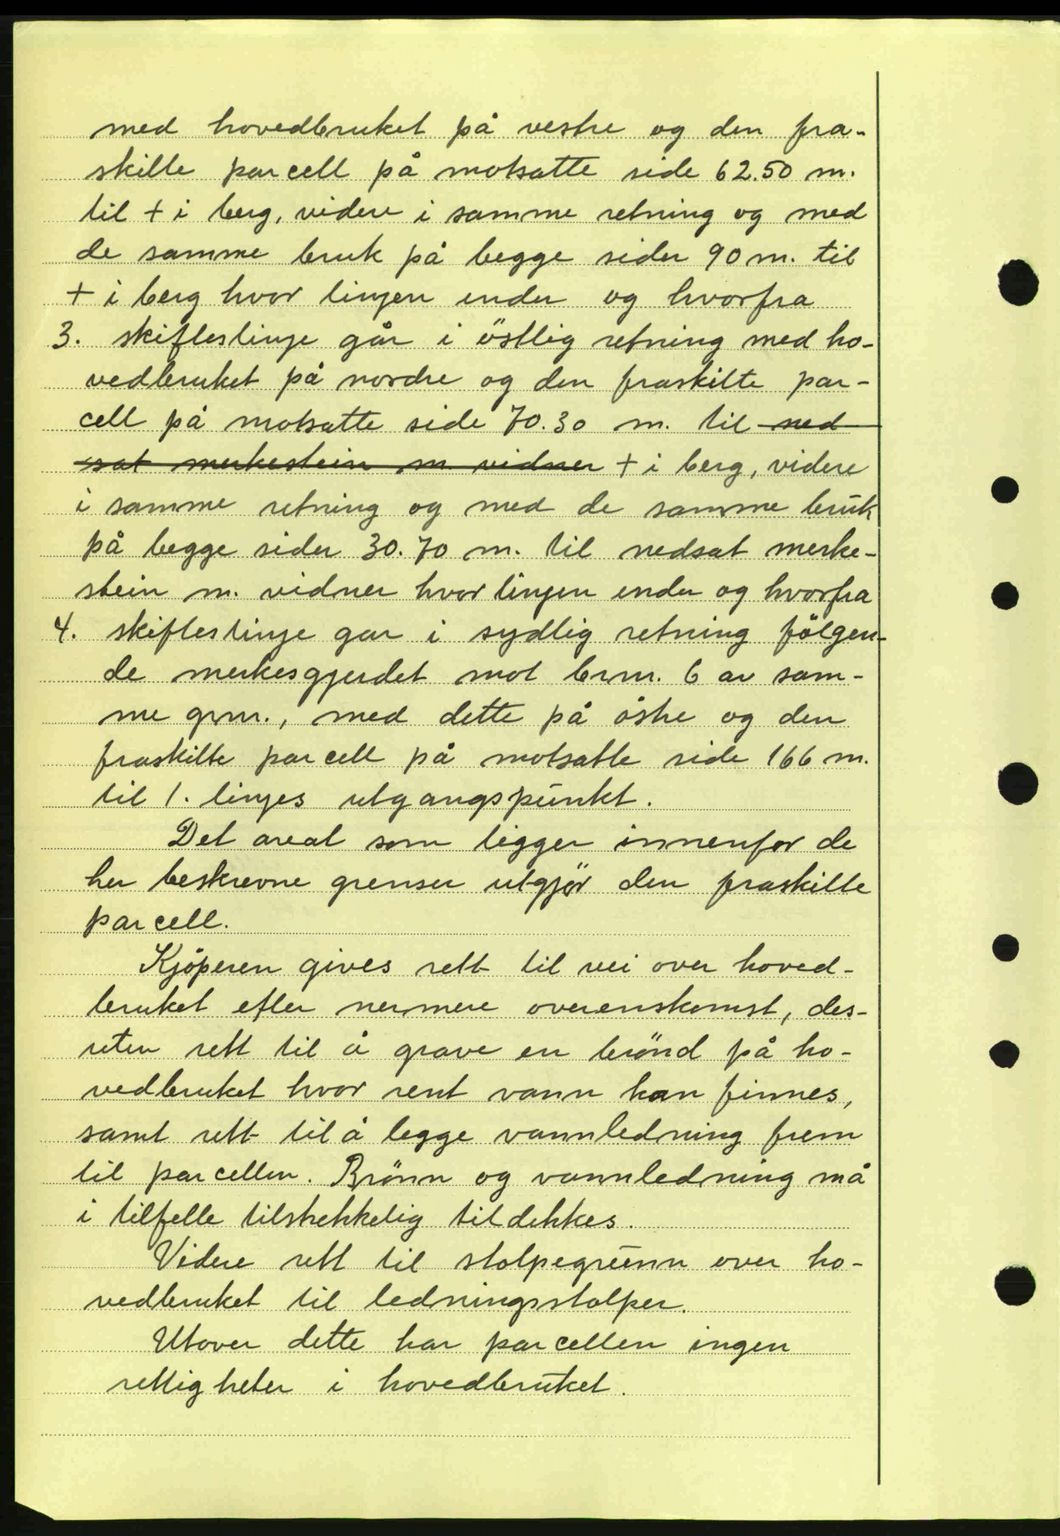 med hovedbruket på vestre og den fra-
skilte parcell på motsatte side 62.50 m.
til + i berg, videre i samme retning og med
de samme bruk på begge sider 90 m. til
+ i berg hvor linjen ender og hvorfra
3. skifteslinje går i östlig retning med ho-
vedbruket på nordre og den fraskilte par-
cell på motsatte side 70.30 m. til ned
sat merkestein m vidner + i berg, videre
i samme retning og med de samme bruk
på begge sider 30.70 m. til nedsat merke-
stein m. vidner hvor linjen ender og hvorfra
4. skifteslinje gar i sydlig retning fölgen-
de merkesgjerdet mot brnr. 6 av sam-
me grnr., med dette på östre og den
fraskilte parcell på motsatte side 166 m.
til 1. linjes utgangspunkt.
Det areal som ligger innenfor de
her beskrevne grenser utgjör den fraskilte
parcell.
Kjöperen gives rett til vei over hoved-
bruket efter nermere overenskomst, des-
uten rett til å grave en brönd på ho-
vedbruket hvor rent vann kan finnes,
samt rett til å legge vannledning frem
til parcellen. Brönn og vannledning må
i tilfelle tilstrekkelig tildekkes.
Videre rett til stolpegrunn over ho-
vedbruket til ledningsstolper.
Utover dette har parcellen ingen
rettigheter i hovedbruket.